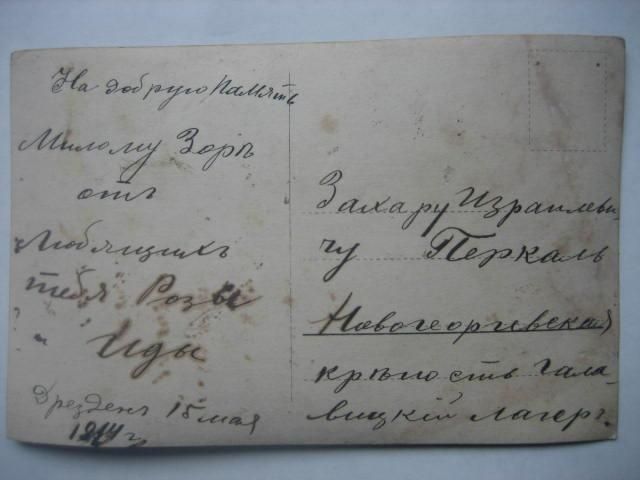 На добрую память
Милому Зоръ
отъ
Любящихъ
тебя Розы
Иды
Дрезденъ 15 мая
1914 г.
Захару Израилеви
чу Перкаль
Новогеоргиевская
крѣпость Гала
вицкій лагерь.